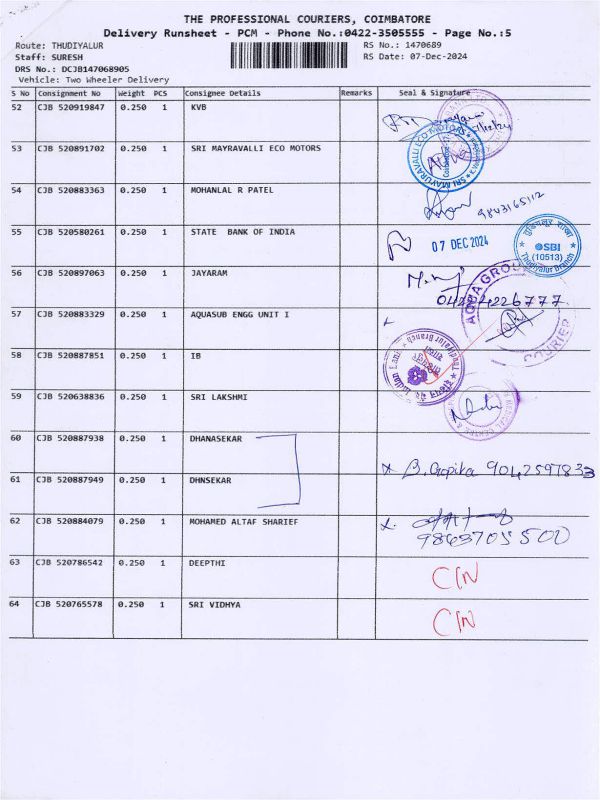 THE PROFESSIONAL COURIERS, COIMBATORE
Delivery Runsheet - PCM - Phone No.:0422-3505555 - Page No.:5
Route: THUDIYALUR
RS No.: 1470689
Staff: SURESH
RS Date: 07-Dec-2024
DRS No.: DCJB147068905
Vehicle: Two Wheeler Delivery
S No Consignment No Weight PCS Consignee Details Remarks Seal & Signature
52 CJB 520919847 0.250 1 KVB
53 CJB 520891702 0.250 1 SRI MAYRAVALLI ECO MOTORS
54 CJB 520883363 0.250 1 MOHANLAL R PATEL 9843165112
55 CJB 520580261 0.250 1 STATE BANK OF INDIA 07 DEC 2024 SBI (10513) Thudiyalur Branch
56 CJB 520897063 0.250 1 JAYARAM 04224226777
57 CJB 520883329 0.250 1 AQUASUB ENGG UNIT I AQUA GROUP COURIER
58 CJB 520887851 0.250 1 IB
59 CJB 520638836 0.250 1 SRI LAKSHMI
60 CJB 520887938 0.250 1 DHANASEKAR
B. Gopika 9042597833
61 CJB 520887949 0.250 1 DHNSEKAR
62 CJB 520884079 0.250 1 MOHAMED ALTAF SHARIEF
9863705500
63 CJB 520786542 0.250 1 DEEPTHI CIN
64 CJB 520765578 0.250 1 SRI VIDHYA CIN